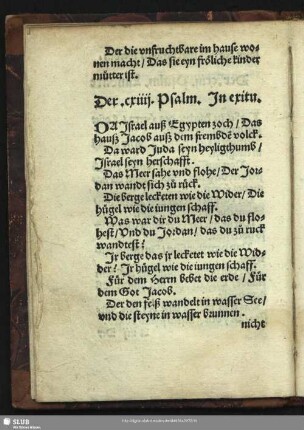 Der die vnfruchtbare im hause wo-
nen macht / Das sie eyn fröliche kinder
mütter ist.
Der .cxiiij. Psalm. In exitu.
DA Israel auß Egypten zoch / Das
hauß Jacob auß dem frembdẽ volck.
Da ward Juda seyn heyligthumb /
Israel seyn herschafft.
Das Meer sahe vnd flohe / Der Jor-
dan wandt sich zů rück.
Die berge lecketen wie die Wider / Die
hügel wie die iungen schaff.
Was war dir du Meer / das du flo-
hest / Vnd du Jordan / das du zů rück
wandtest?
Ir berge das jr lecketet wie die Wid-
der / Ir hügel wie die iungen schaff.
Für dem Herrn bebet die erde / Für
dem Got Jacob.
Der den felß wandelt in wasser See /
vnd die steyne in wasser brunnen.
nicht
SLUB
Wir führen Wissen.